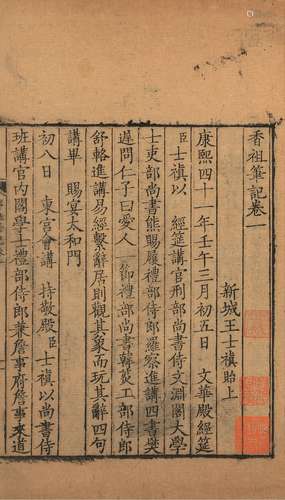 香祖筆記卷一
新城王士禛貽上
康熙四十一年壬午三月初五日 文華殿經筵
臣士禛以 經筵講官刑部尚書侍文淵閣大學
士吏部尚書熊賜履禮部侍郎羅察進講四書樊
遲問仁子曰愛人一節禮部尚書韓菼工部侍郎
舒輅進講易經繫辭居則觀其象而玩其辭四句
講畢 賜宴太和門
初八日 東宮會講 持敬殿臣士禛以尚書侍
班講官內閣學士禮部侍郎兼詹事府詹事來道